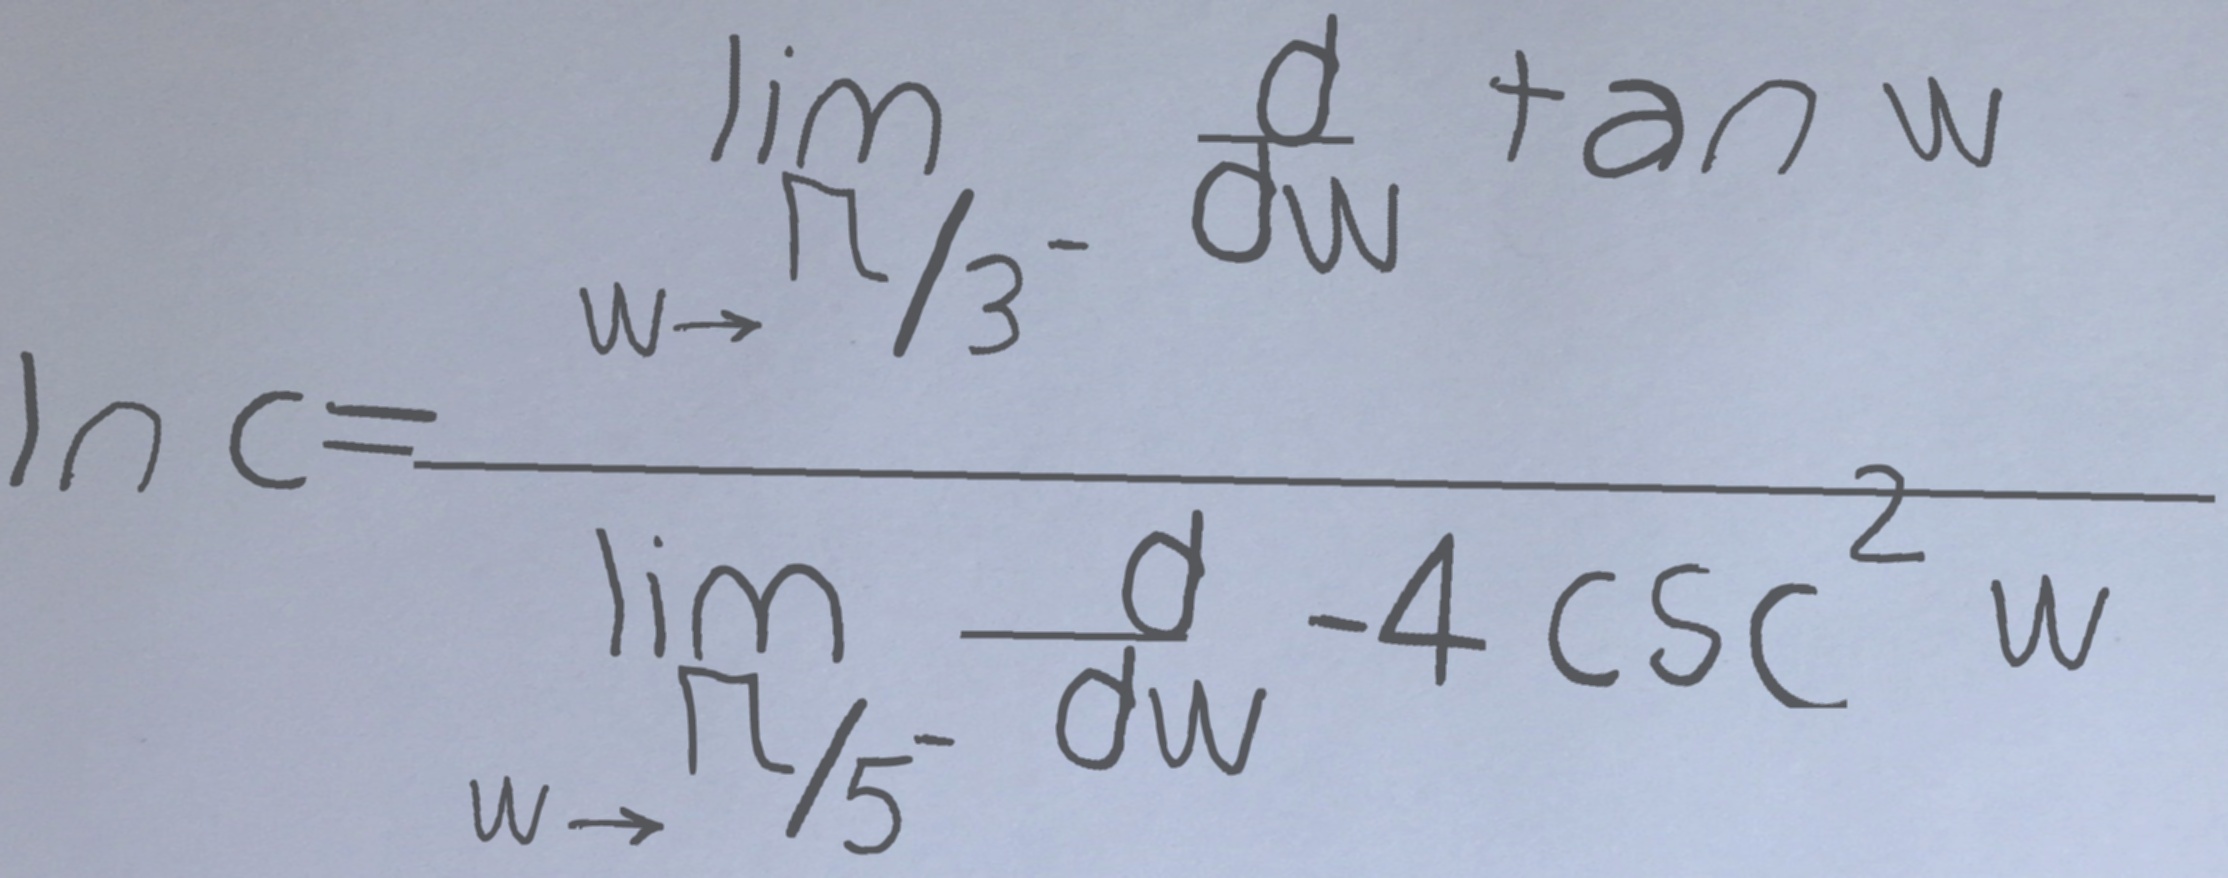 \ln c = \frac{\lim_{w \to \pi/3^-} \frac{d}{dw} \tan w}{\lim_{w \to \pi/5^-} \frac{d}{dw} -4 \csc^2 w}